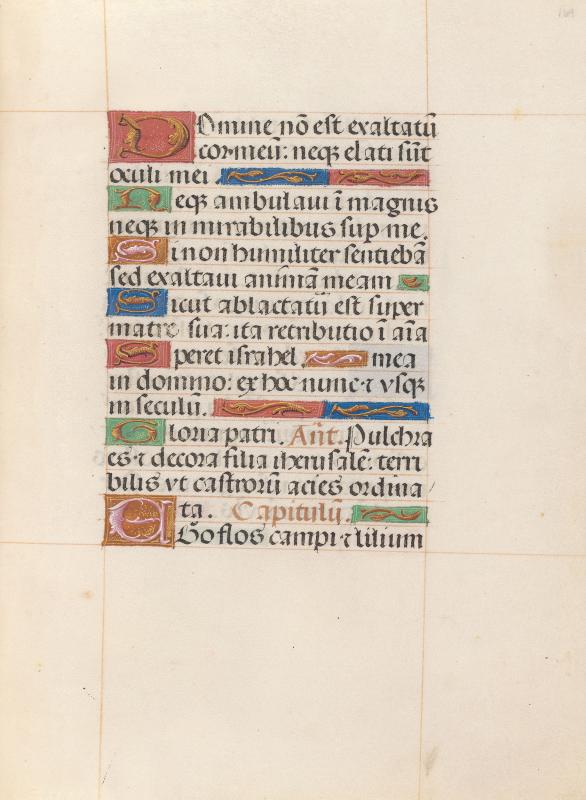 Domine nō est exaltatū
cor meū: neq̄ elati sūt
oculi mei.
Neq̄ ambulaui ī magnis
neq̄ in mirabilibus sup me.
Si non humiliter sentiebā
sed exaltaui animā meam
Sicut ablactatū est super
matre sua: ita retributio ī aīa
Speret israhel mea
in domino: ex hoc nunc ⁊ vsq̄
in seculū.
Gloria patri. Añt. Pulchra
es ⁊ decora filia iherusalē: terri
bilis vt castrorū acies ordina
ta. Capitulū.
EGo flos campi ⁊ lilium